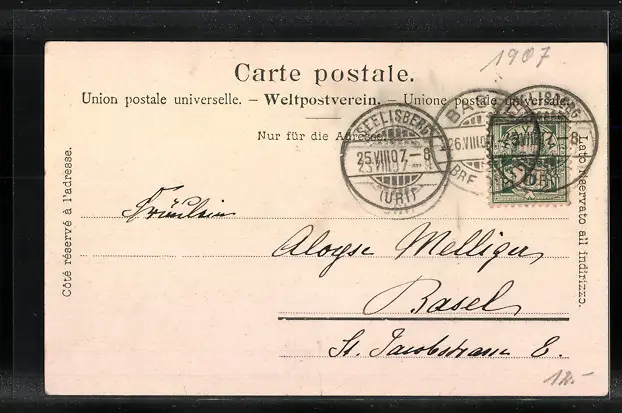 1907
Carte postale.
Union postale universelle. – Weltpostverein. – Unione postale universale.
Nur für die Adresse.
SEELISBERG
25.VIII.07.–8
(URI)
BASEL
26.VIII.07
BRF.
SEELISBERG
25.VIII.07.–8
(URI)
Côté réservé à l'adresse.
Lato riservato all indirizzo.
Fräulein
Aloyse Melliger
Basel
St. Jacobstrasse 8.
12.-